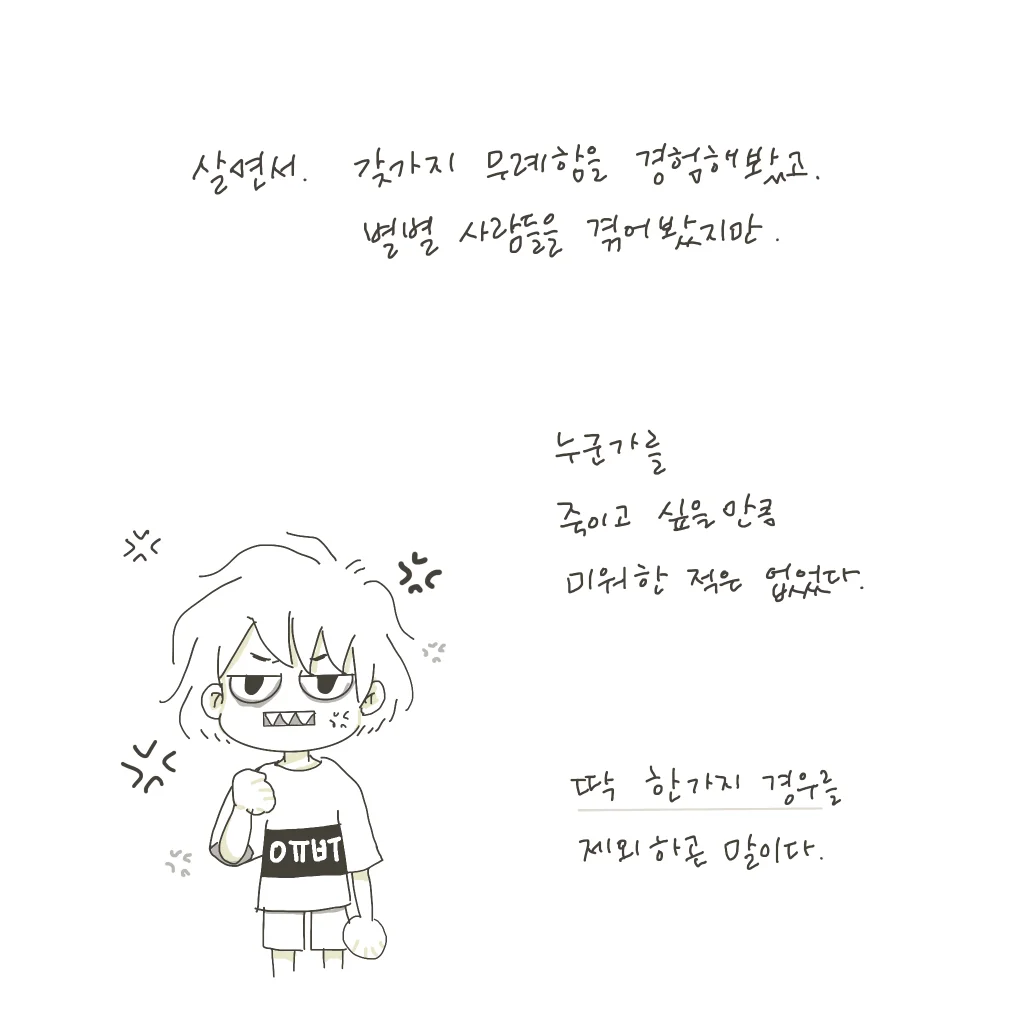 살면서. 갖가지 무례함을 경험해봤고.
별별 사람들을 겪어봤지만.
누군가를
죽이고 싶을 만큼
미워한 적은 없었다.
딱 한가지 경우를
제외하곤 말이다.